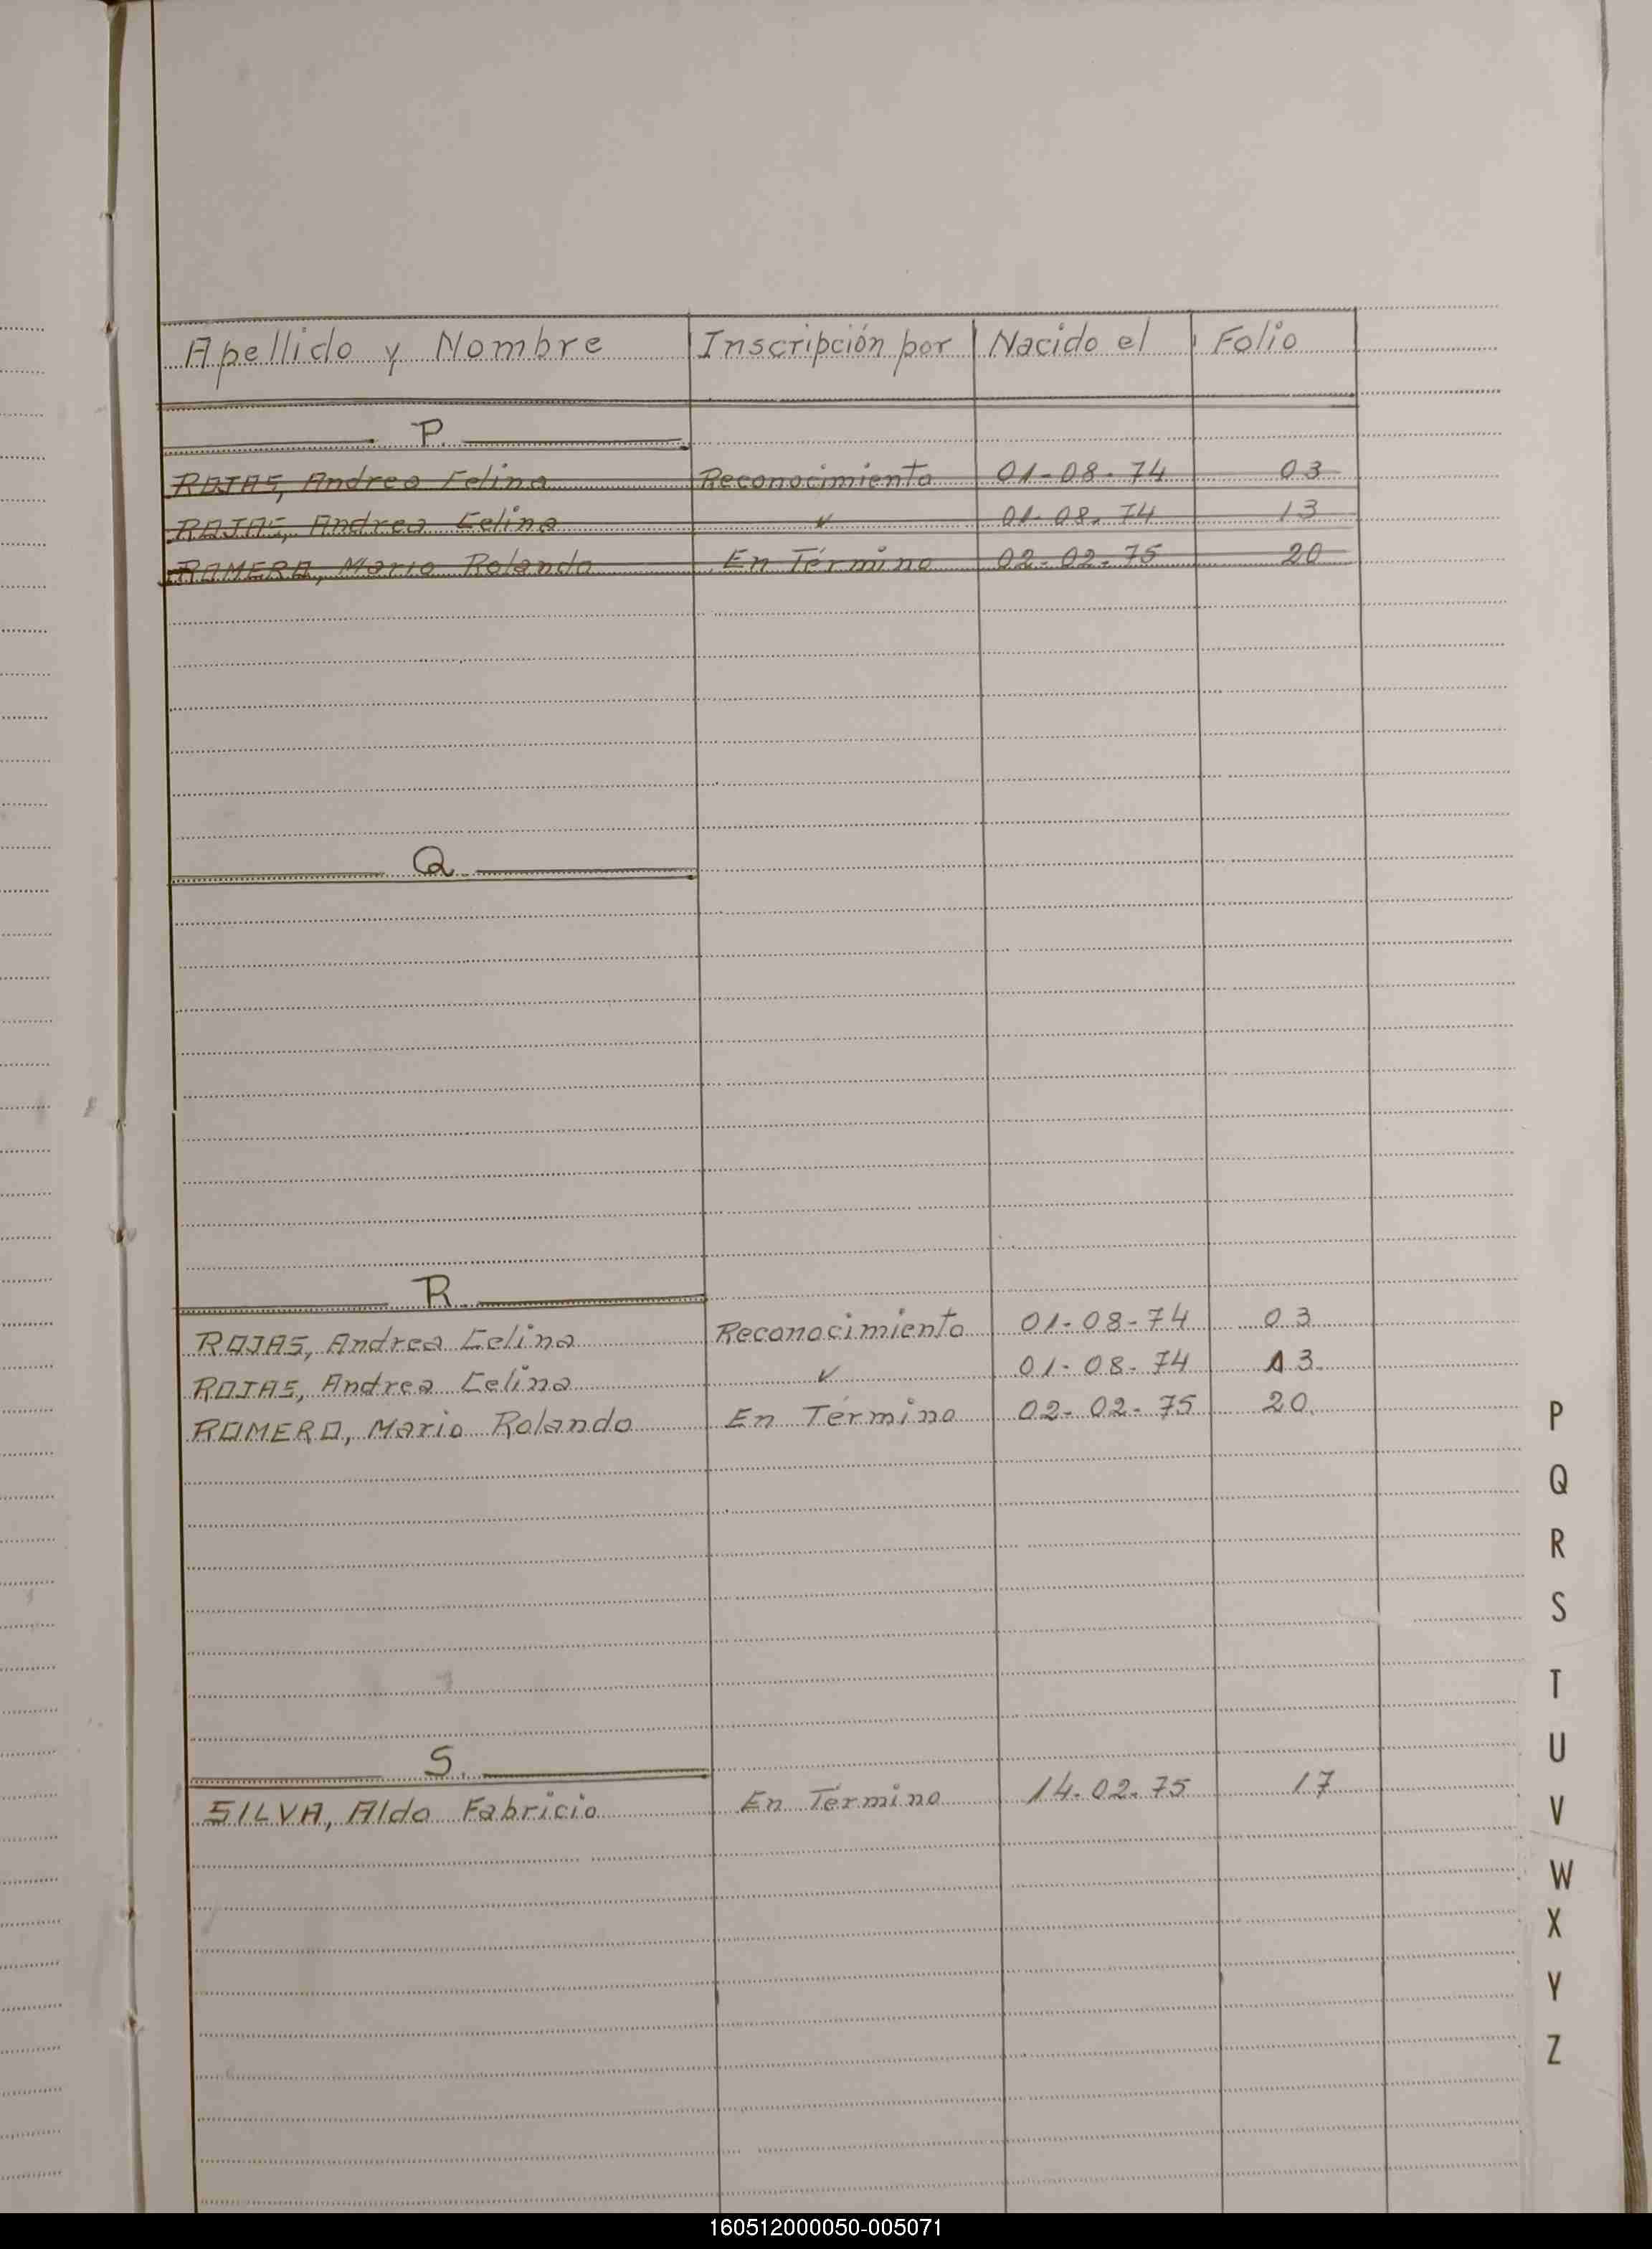 Apellido y Nombre Inscripción por Nacido el Folio
P.
ROJAS, Andrea Celina Reconocimiento 01-08-74 03
ROJAS, Andrea Celina ✓ 01-08-74 13
ROMERO, Mario Rolando En Término 02-02-75 20
Q.
R.
ROJAS, Andrea Celina Reconocimiento 01-08-74 03
ROJAS, Andrea Celina ✓ 01-08-74 13
ROMERO, Mario Rolando En Término 02-02-75 20.
S.
SILVA, Aldo Fabricio En Término 14-02-75 17
P
Q
R
S
T
U
V
W
X
Y
Z
160512000050-005071